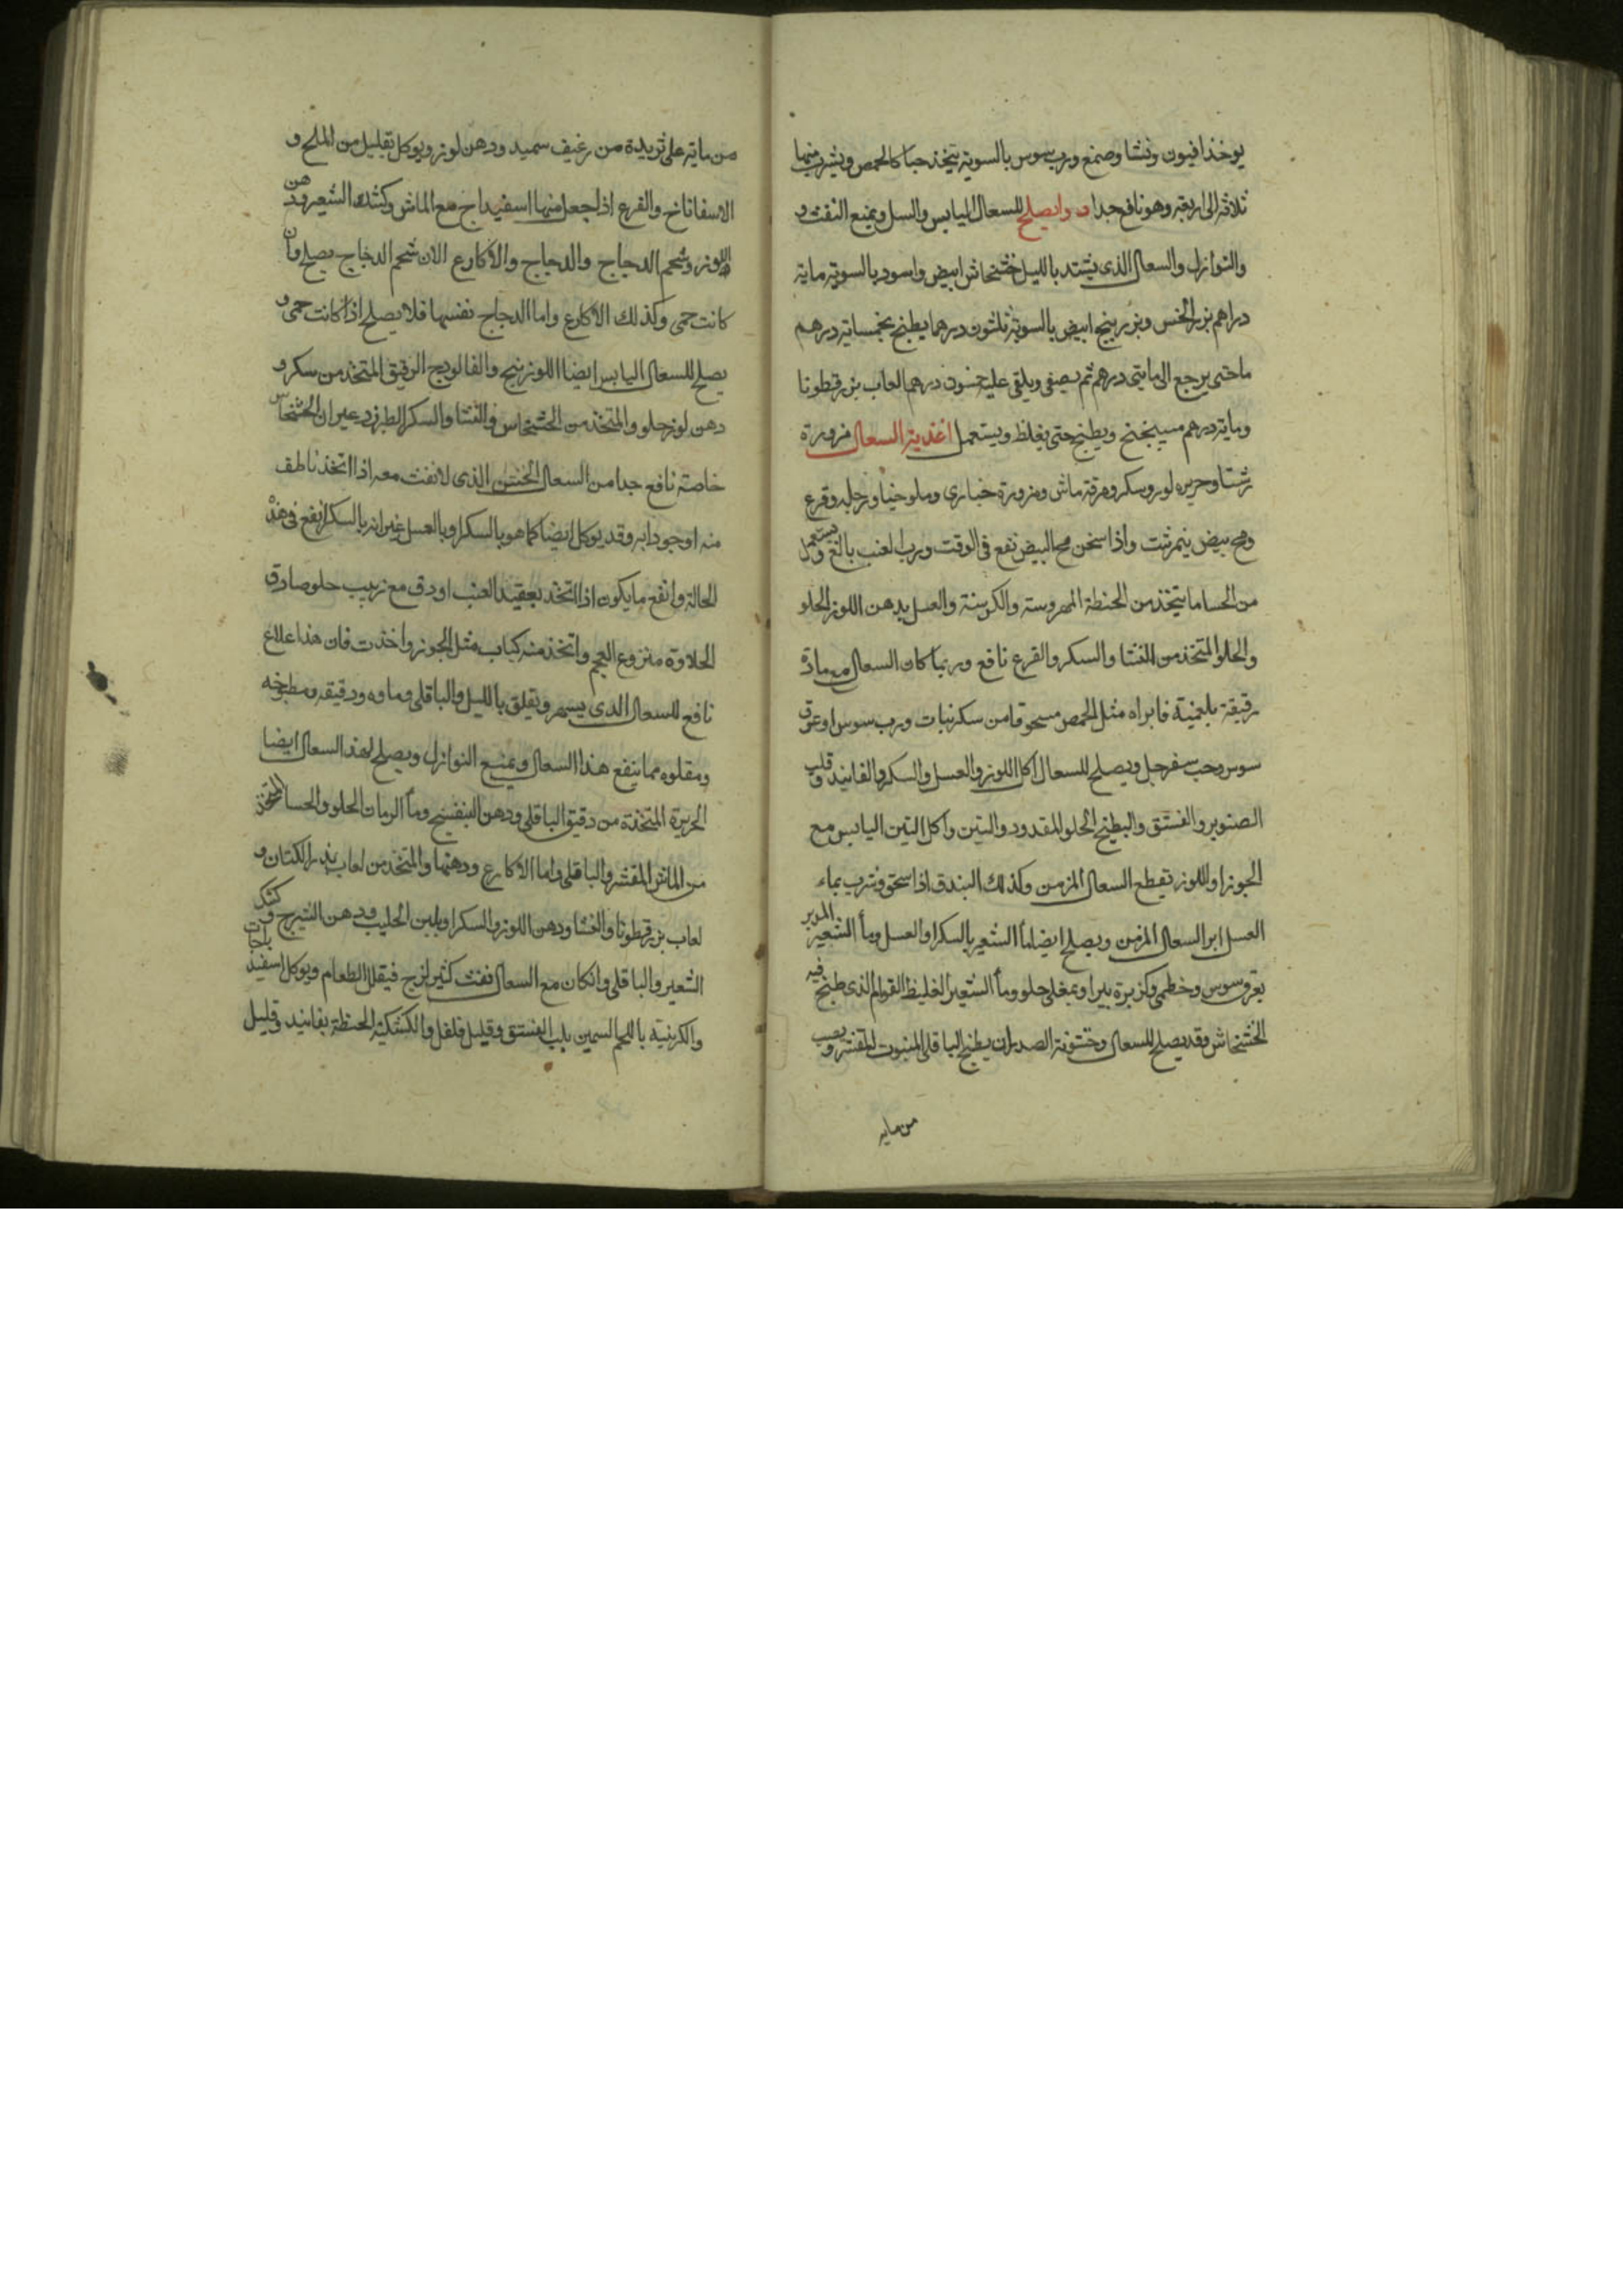 يوخذ افيون ونشا وصمغ ورب سوس بالسوية يتخذ حبا كالحمص ويشرب منها
ثلاثة الى اربعة وهو نافع جدا دوا يصلح للسعال اليابس والسل ويمنع النفث و
والنوازل والسعال الذى يشتد بالليل خشخاش ابيض واسود بالسوية ماية
دراهم بزر الخس وبزر بنج ابيض بالسوية ثلثون درهما يطبخ بخمسماية درهم
ما حتى يرجع الى مايتى درهم ثم يصفى ويلقى عليه خمسون درهما لعاب بزرقطونا
وماية درهم ميبختج ويطبخ حتى يغلظ ويستعمل اغذية السعال مزورة
رشتا وحريره لوز وسكر ومرقة ماش ومزورة خبازى وملوخيا ورجله وقرع
ومح بيض ينمرشت واذا سخن مح البيض نفع فى الوقت ورب العنب بالغ ويستعمل
من الحسا ما يتخذ من الحنطة المهروسة والكرسنة والعسل بدهن اللوز الحلو
والحلوا المتخذ من النشا والسكر والقرع نافع وربما كان السعال من مادة
رقيقة بلغمية فابراه مثل الحمص مسحوقا من سكر نبات ورب سوس او عرق
سوس وحب سفرجل ويصلح للسعال اكل اللوز والعسل والسكر والفانيد وقلب
الصنوبر والفستق والبطيخ الحلو المقدود والتين واكل التين اليابس مع
الجوز او اللوز تقطع السعال المزمن وكذلك البندق اذا سحق وشرب بماء
العسل ابرا السعال المزمن ويصلح ايضا ماٴ الشعير بالسكر او العسل وماٴ الشعير المدبر
بعرق سوس وخطمى وكزبرة بير او بمغلى حلو وماٴ الشعير الغليظ القوام الذى طبخ فيه
الخشخاش وقد يصلح للسعال وخشونة الصدر ان يطبخ الباقلى المنبوت المقشر ويصب
من مايه
من مايه على ثريدة من رغيف سميد ودهن لوز ويوكل بقليل من الملح و
الاسفاناخ والقرع اذا جعل منها اسفيداج مع الماش وكشك الشعير ودهن
اللوز وشحم الدجاج والدجاج والاكارع الا ان شحم الدجاج يصلح وان
كانت حمى وكذلك الاكارع واما الدجاج نفسها فلا يصلح اذا كانت حمى و
يصلح للسعال اليابس ايضا اللوزينج والفالوذج الرقيق المتخذ من سكر و
دهن لوز حلو والمتخذ من الخشخاش والنشا والسكر الطبرزد غير ان الخشخاش
خاصة نافع جدا من السعال الخشن الذى لا نفث معه اذا اتخذ ناطف
منه او جوذابه وقد يوكل ايضا كما هو بالسكر او بالعسل غير انه بالسكر انفع فى هذه
الحالة وانفع ما يكون اذا اتخذ بعقيد العنب او دق مع زبيب حلو صادق
الحلاوة منزوع العجم واتخذ منه كباب مثل الجوز واخذت فان هذا علاج
نافع للسعال الذى يسهر ويقلق بالليل والباقلى وماوه ودقيقه ومطبوخه
ومقلوه مما ينفع هذا السعال ويمنع النوازل ويصلح لهذ السعال ايضا
الحريرة المتخذة من دقيق الباقلى ودهن البنفسج وماٴ الرمان الحلو والحسا المتخذ
من الماش المقشر والباقلى واما الاكارع ودهنها والمتخذ من لعاب بذر الكتان و
لعاب بزرقطونا والنشا ودهن اللوز والسكر او بلبن الحليب ودهن الشيرج وكشك
الشعير والباقلى وان كان مع السعال نفث كثير لزج فيقلل الطعام ويوكل اسفيذباجات
والكرنبية باللحم السمين بلب الفستق وقليل فلفل والكشكية الحنطة بفانيد وقليل